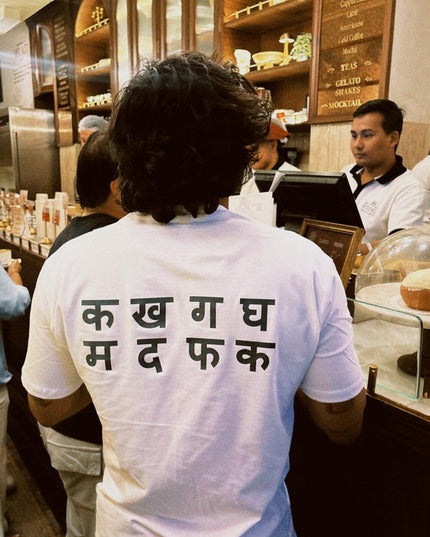 Cappuccino
Latte
Americano
Cold Coffee
Mocha
TEAS
GELATO
SHAKES
MOCKTAIL
क ख ग घ
म द फ क